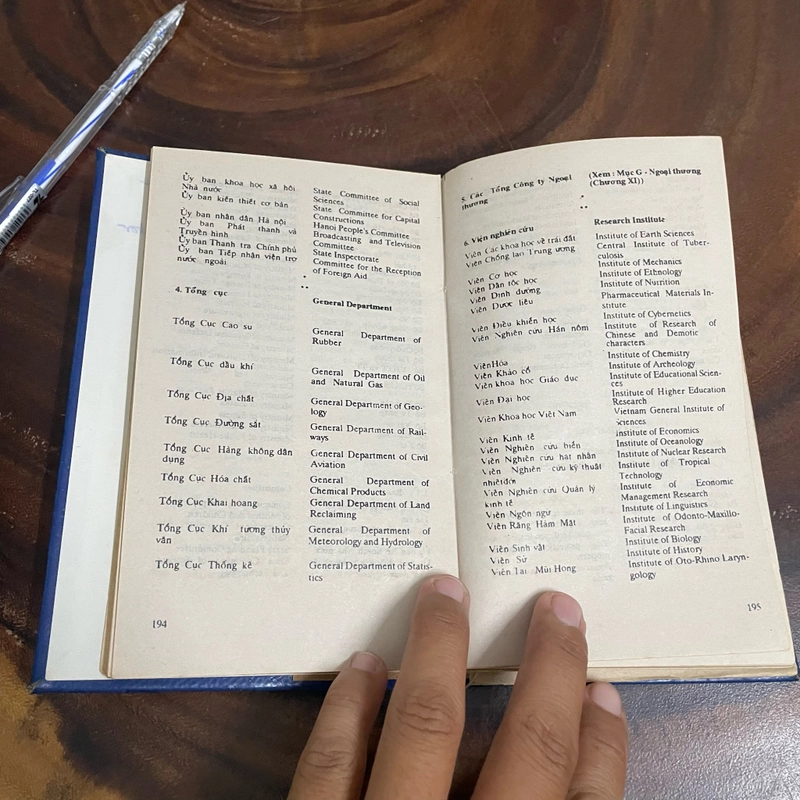 Ủy ban khoa học xã hội
Nhà nước
State Committee of Social
Sciences
Ủy ban kiến thiết cơ bản
State Committee for Capital
Constructions
Ủy ban nhân dân Hà nội
Hanoi People's Committee
Ủy ban Phát thanh và
Truyền hình
Broadcasting and Television
Committee
Ủy ban Thanh tra Chính phủ
State Inspectorate
Ủy ban Tiếp nhận viện trợ
nước ngoài
Committee for the Reception
of Foreign Aid
4. Tổng cục
General Department
Tổng Cục Cao su
General Department of
Rubber
Tổng Cục dầu khí
General Department of Oil
and Natural Gas
Tổng Cục Địa chất
General Department of Geo-
logy
Tổng Cục Đường sắt
General Department of Rail-
ways
Tổng Cục Hàng không dân
dụng
General Department of Civil
Aviation
Tổng Cục Hóa chất
General Department of
Chemical Products
Tổng Cục Khai hoang
General Department of Land
Reclaiming
Tổng Cục Khí tượng thủy
văn
General Department of
Meteorology and Hydrology
Tổng Cục Thống kê
General Department of Statis-
tics
194
5. Các Tổng Công ty Ngoại
thương
(Xem : Mục G - Ngoại thương
(Chương XI))
6. Viện nghiên cứu
Research Institute
Viện Các khoa học về trái đất
Institute of Earth Sciences
Viện Chống lao Trung ương
Central Institute of Tuber-
culosis
Viện Cơ học
Institute of Mechanics
Viện Dân tộc học
Institute of Ethnology
Viện Dinh dưỡng
Institute of Nutrition
Viện Dược liệu
Pharmaceutical Materials In-
stitute
Viện Điều khiển học
Institute of Cybernetics
Viện Nghiên cứu Hán nôm
Institute of Research of
Chinese and Demotic
characters
Viện Hóa
Institute of Chemistry
Viện Khảo cổ
Institute of Archeology
Viện khoa học Giáo dục
Institute of Educational Scien-
ces
Viện Đại học
Institute of Higher Education
Research
Viện Khoa học Việt Nam
Vietnam General Institute of
Sciences
Viện Kinh tế
Institute of Economics
Viện Nghiên cứu biển
Institute of Oceanology
Viện Nghiên cứu hạt nhân
Institute of Nuclear Research
Viện Nghiên cứu kỹ thuật
nhiệt đới
Institute of Tropical
Technology
Viện Nghiên cứu Quản lý
kinh tế
Institute of Economic
Management Research
Viện Ngôn ngữ
Institute of Linguistics
Viện Răng Hàm Mặt
Institute of Odonto-Maxillo-
Facial Research
Viện Sinh vật
Institute of Biology
Viện Sử
Institute of History
Viện Tai Mũi Họng
Institute of Oto-Rhino Laryn-
gology
195